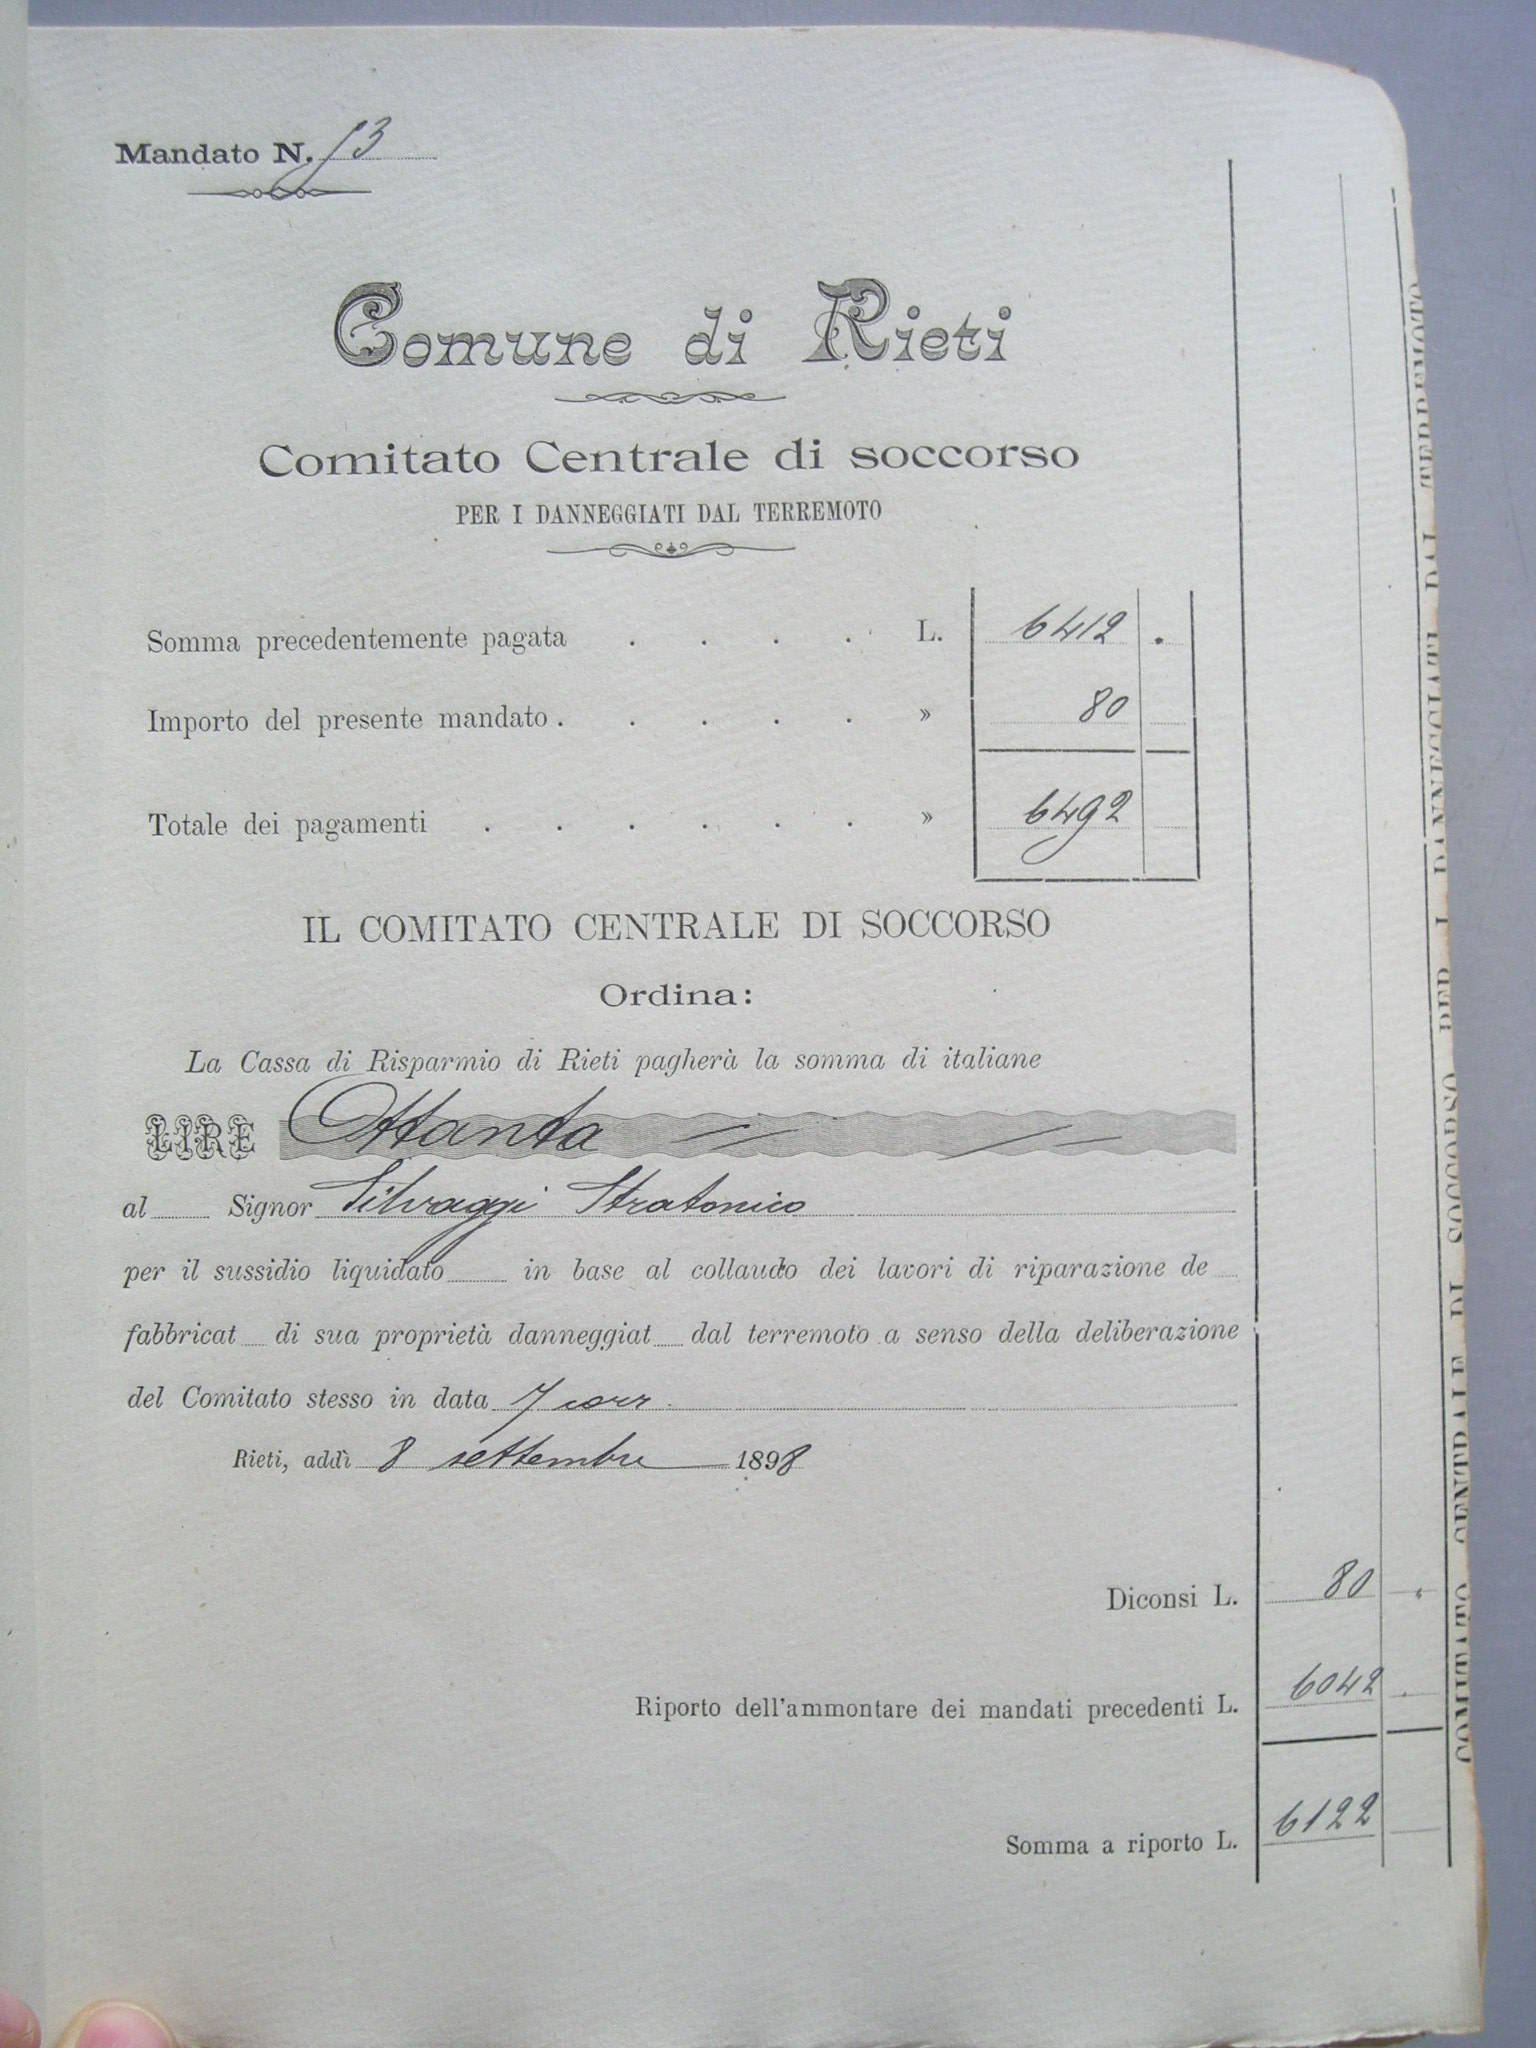 Mandato N. 93
Comune di Rieti
Comitato Centrale di soccorso
PER I DANNEGGIATI DAL TERREMOTO
Somma precedentemente pagata . . . . L. 6412 .
Importo del presente mandato . . . . . » 80
Totale dei pagamenti . . . . . . » 6492
IL COMITATO CENTRALE DI SOCCORSO
Ordina:
La Cassa di Risparmio di Rieti pagherà la somma di italiane
LIRE Ottanta
al Signor Silvaggi Stratonico
per il sussidio liquidato in base al collaudo dei lavori di riparazione de
fabbricat di sua proprietà danneggiat dal terremoto a senso della deliberazione
del Comitato stesso in data 7 corr.
Rieti, addì 8 settembre 1898
Diconsi L. 80
Riporto dell'ammontare dei mandati precedenti L. 6042
Somma a riporto L. 6122
COMITATO CENTRALE DI SOCCORSO PER I DANNEGGIATI DAL TERREMOTO